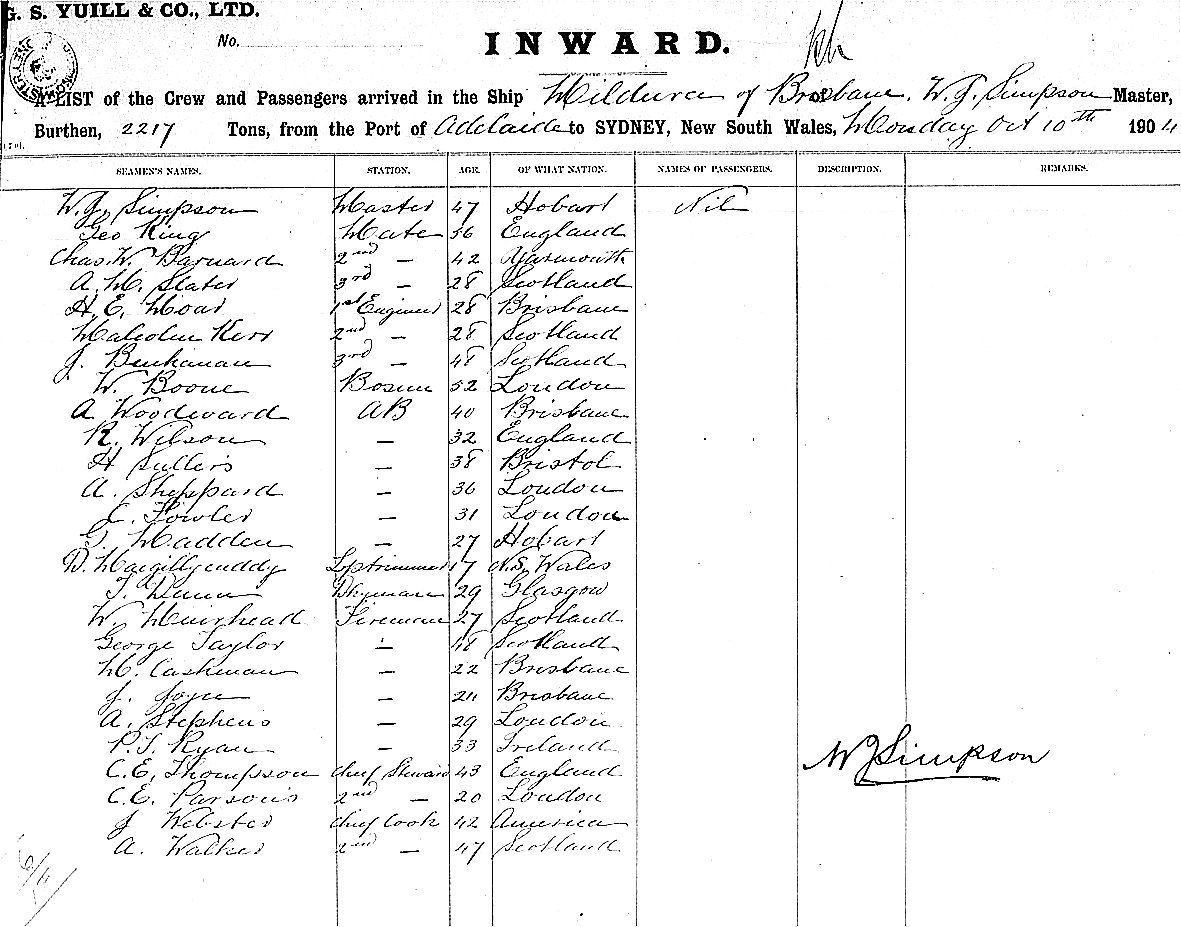 G. S. YUILL & CO., LTD.
No.
INWARD.
A LIST of the Crew and Passengers arrived in the Ship Mildura of Brisbane, W. J. Simpson Master,
Burthen, 2217 Tons, from the Port of Adelaide to SYDNEY, New South Wales, Monday Oct 10th 1904
SEAMEN'S NAMES. STATION. AGE. OF WHAT NATION. NAMES OF PASSENGERS. DESCRIPTION. REMARKS.
W. J. Simpson Master 47 Hobart Nil
Geo King Mate 56 England
Chas. W. Barnard 2nd — 42 Yarmouth
A. M. Slater 3rd — 28 Scotland
H. E. Moar 1st Engineer 28 Brisbane
Malcolm Kerr 2nd — 28 Scotland
J. Buchanan 3rd — 48 Scotland
W. Boone Bosun 52 London
A Woodward AB 40 Brisbane
R. Wilson — 32 England
H Sullers — 38 Bristol
A. Sheppard — 36 London
C. Fowler — 31 London
G. Madden — 27 Hobart
D. Lptrimmer 17 N.S. Wales
T. Dunn 29 Glasgow
W. Muirhead Fireman 27 Scotland
George Taylor — 48 Scotland
M. Cashman — 22 Brisbane
J. Joyce — 24 Brisbane
A. Stephens — 29 London
P. T. Ryan — 33 Ireland
W J Simpson
C. E. Thompson chief Steward 43 England
C. E. Parsons 2nd — 20 London
J Webster chief Cook 42 America
A. Walker 2nd — 47 Scotland